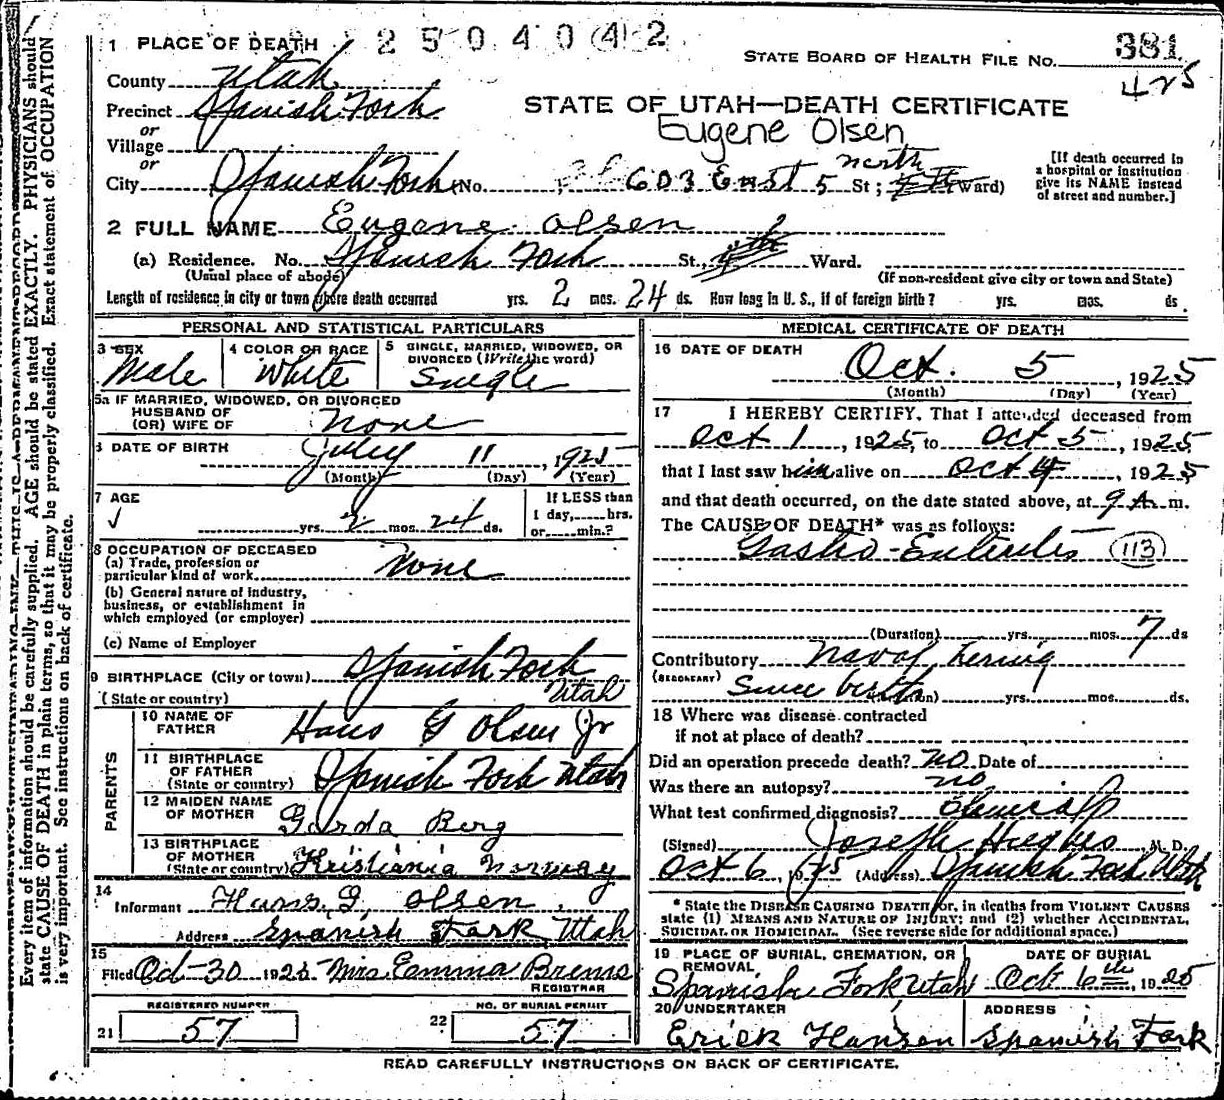 Every item of information should be carefully supplied. AGE should be stated EXACTLY. PHYSICIANS should
state CAUSE OF DEATH in plain terms, so that it may be properly classified. Exact statement of OCCUPATION
is very important. See instructions on back of certificate.
2 5 0 4 0 4 2
1 PLACE OF DEATH
STATE BOARD OF HEALTH FILE No. 381
425
County Utah
Precinct Spanish Fork
STATE OF UTAH—DEATH CERTIFICATE
Eugene Olsen
or
Village
or
City Spanish Fork No. 603 East 5 north St; 4th Ward)
[If death occurred in
a hospital or institution
give its NAME instead
of street and number.]
2 FULL NAME Eugene Olsen
(a) Residence. No. Spanish Fork St., 4th Ward.
(Usual place of abode) (If non-resident give city or town and State)
Length of residence in city or town where death occurred yrs. 2 mos. 24 ds. How long in U. S., if of foreign birth? yrs. mos. ds
PERSONAL AND STATISTICAL PARTICULARS
3 SEX
Male
4 COLOR OR RACE
White
5 SINGLE, MARRIED, WIDOWED, OR
DIVORCED (Write the word)
Single
5a IF MARRIED, WIDOWED, OR DIVORCED
HUSBAND OF
(OR) WIFE OF None
6 DATE OF BIRTH July 11, 1925
(Month) (Day) (Year)
7 AGE
yrs. 2 mos. 24 ds.
If LESS than
1 day, hrs.
or min.?
8 OCCUPATION OF DECEASED
(a) Trade, profession or
particular kind of work None
(b) General nature of industry,
business, or establishment in
which employed (or employer)
(c) Name of Employer
9 BIRTHPLACE (City or town) Spanish Fork
(State or country) Utah
PARENTS
10 NAME OF
FATHER Hans G Olsen Jr
11 BIRTHPLACE
OF FATHER
(State or country) Spanish Fork Utah
12 MAIDEN NAME
OF MOTHER Garda Berg
13 BIRTHPLACE
OF MOTHER
(State or country) Kristiania Norway
14
Informant Hans G. Olsen.
Address Spanish Fork, Utah
15
Filed Oct-30 1925 Mrs Emma Brems
REGISTRAR
REGISTERED NUMBER
21 57
NO. OF BURIAL PERMIT
22 57
MEDICAL CERTIFICATE OF DEATH
16 DATE OF DEATH
Oct. 5, 1925
(Month) (Day) (Year)
17 I HEREBY CERTIFY, That I attended deceased from
Oct 1, 1925, to Oct 5, 1925
that I last saw him alive on Oct 4, 1925
and that death occurred, on the date stated above, at 9 A. m.
The CAUSE OF DEATH* was as follows:
Gastro-Enteritis 113
(Duration) yrs. mos. 7 ds
Contributory Naval hernia
(SECONDARY) Since birth (Duration) yrs. mos. ds.
18 Where was disease contracted
if not at place of death?
Did an operation precede death? NO Date of
Was there an autopsy? no
What test confirmed diagnosis? Clinical
(Signed) Joseph Hughes, M. D.
Oct 6, 1925 (Address) Spanish Fork Utah
* State the DISEASE CAUSING DEATH or, in deaths from VIOLENT CAUSES
state (1) MEANS AND NATURE OF INJURY; and (2) whether ACCIDENTAL,
SUICIDAL OR HOMICIDAL. (See reverse side for additional space.)
19 PLACE OF BURIAL, CREMATION, OR
REMOVAL
Spanish Fork, Utah
DATE OF BURIAL
Oct 6th, 1925
20 UNDERTAKER
Erick Hansen
ADDRESS
Spanish Fork
READ CAREFULLY INSTRUCTIONS ON BACK OF CERTIFICATE.